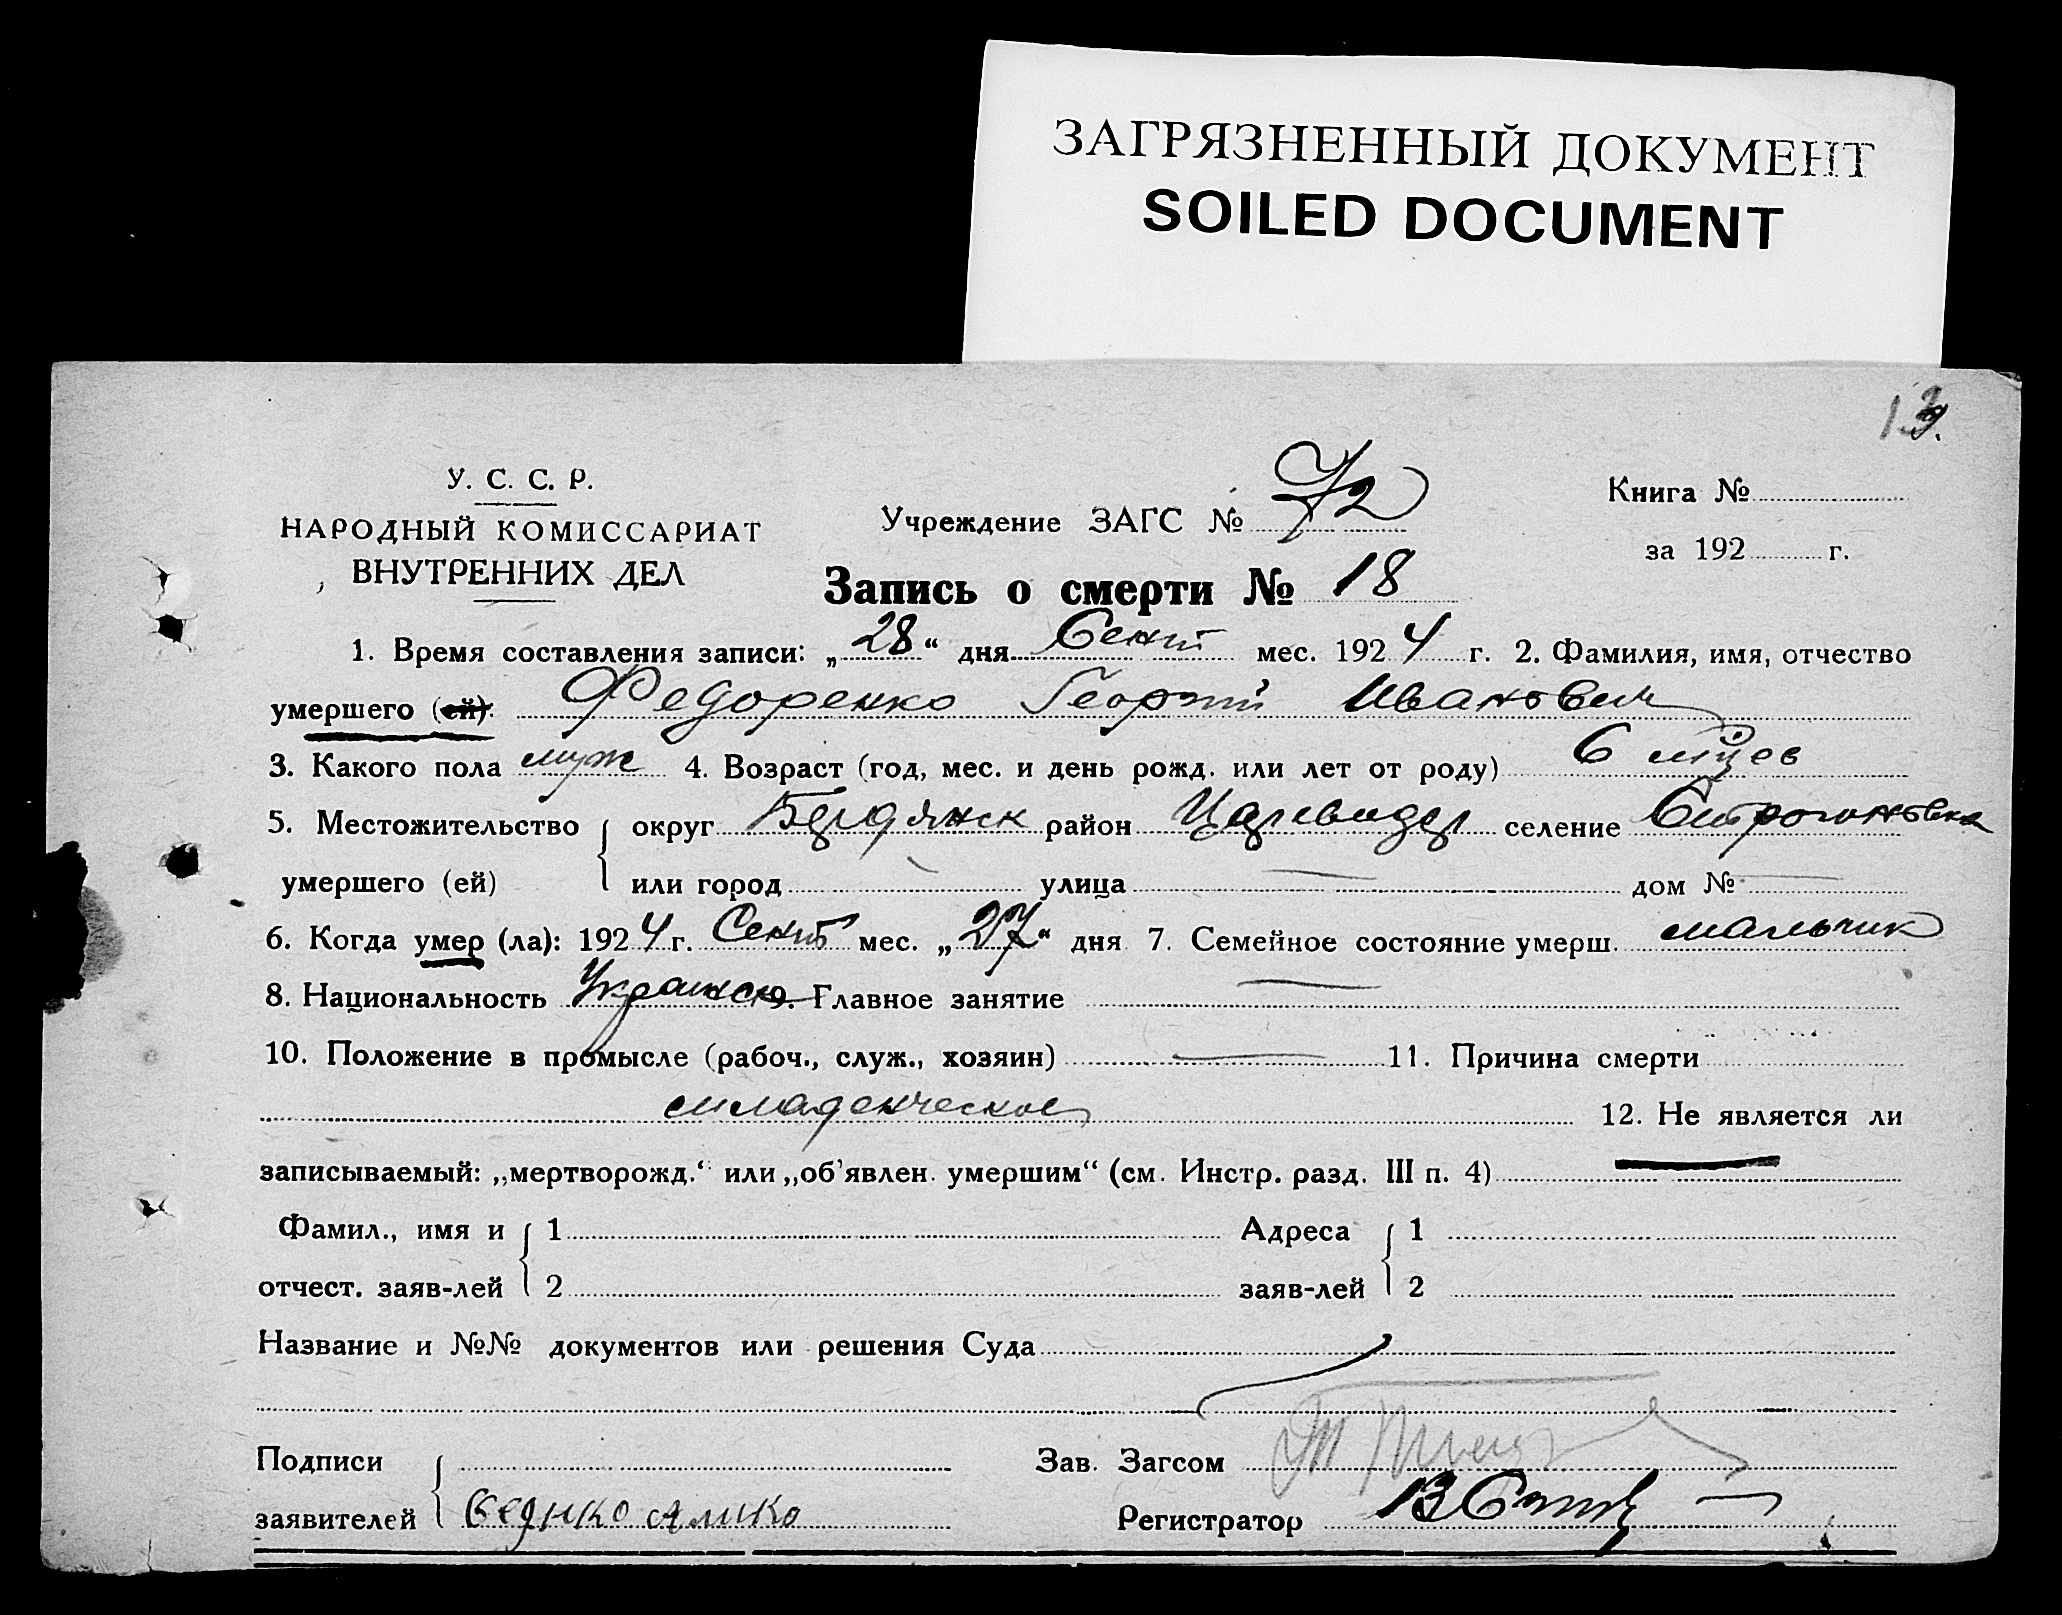 ЗАГРЯЗНЕННЫЙ ДОКУМЕНТ
SOILED DOCUMENT
У. С. С. Р.
НАРОДНЫЙ КОМИССАРИАТ
ВНУТРЕННИХ ДЕЛ
Учреждение ЗАГС № 72
Книга №
за 192 г.
Запись о смерти № 18
1. Время составления записи: „28“ дня Сент мес. 1924 г. 2. Фамилия, имя, отчество
умершего (ей). Федоренко Георгий Иванович
3. Какого пола муж 4. Возраст (год, мес. и день рожд. или лет от роду) 6 м-цев
5. Местожительство округ Бердянск район Царевидар селение Строгоновка
умершего (ей) или город — улица — дом № —
6. Когда умер (ла): 1924 г. Сент мес. „27“ дня 7. Семейное состояние умерш. мальчик
8. Национальность 9. Главное занятие —
10. Положение в промысле (рабоч., служ., хозяин) — 11. Причина смерти
младенческое 12. Не является ли
записываемый: „мертворожд.“ или „об'явлен. умершим“ (см. Инстр. разд. III п. 4) —
Фамил., имя и 1 Адреса 1
отчест. заяв-лей 2 заяв-лей 2
Название и №№ документов или решения Суда
Подписи Зав. Загсом
заявителей Регистратор